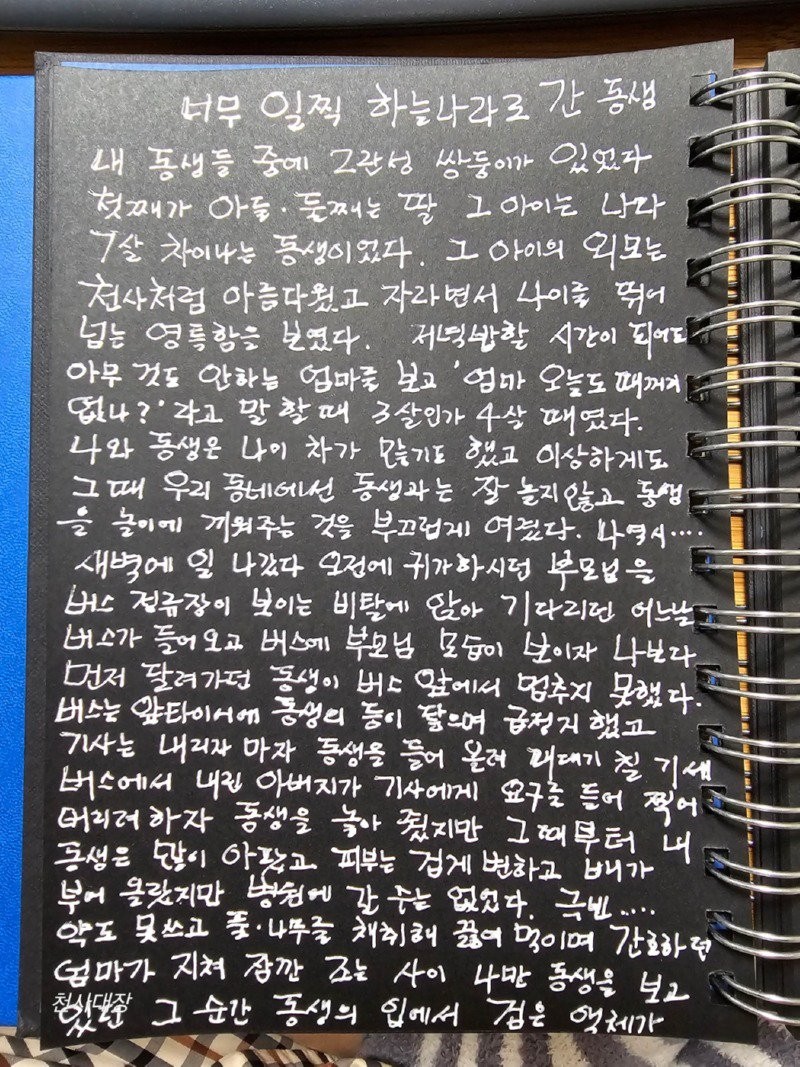 너무 일찍 하늘나라로 간 동생
내 동생들 중에 2란성 쌍둥이가 있었다
첫째가 아들·둘째는 딸 그 아이는 나와
7살 차이나는 동생이었다. 그 아이의 외모는
천사처럼 아름다웠고 자라면서 나이를 뛰어
넘는 영특함을 보였다. 저녁밥할 시간이 되어도
아무 것도 안하는 엄마를 보고 '엄마 오늘도 때꺼리
없나?'라고 말할 때 3살인가 4살 때였다.
나와 동생은 나이 차가 많기도 했고 이상하게도
그때 우리 동네에선 동생과는 잘 놀지않고 동생
을 놀이에 끼워주는 것을 부끄럽게 여겼다. 나역시....
새벽에 일 나갔다 오전에 귀가하시던 부모님을
버스 정류장이 보이는 비탈에 앉아 기다리던 어느날
버스가 들어오고 버스에 부모님 모습이 보이자 나보다
먼저 달려가던 동생이 버스 앞에서 멈추지 못했다.
버스는 앞타이어에 동생의 등이 닿으며 급정지했고
기사는 내리자 마자 동생을 들어 올려 패대기 칠 기세
버스에서 내린 아버지가 기사에게 요구를 들어 찍어
버리려 하자 동생을 놓아 줬지만 그때부터 내
동생은 많이 아팠고 피부는 검게 변하고 배가
부어 올랐지만 병원에 갈 수는 없었다. 극빈....
약도 못쓰고 풀·나무를 채취해 끓여 먹이며 간호하던
엄마가 지쳐 잠깐 조는 사이 나만 동생을 보고
있던 그 순간 동생의 입에서 검은 액체가
천사대장